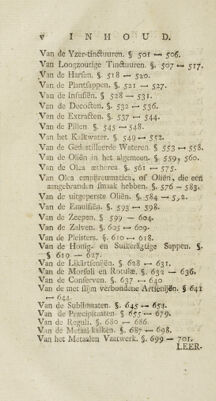 v INHOUD.
Van de Yzer-tinctuuren. §. 501 — 506.
Van Loogzoutige Tinctuuren. §. 507 — 517.
Van de Harsen. §. 518 — 520.
Van de Plantsappen. §. 521 — 527.
Van de Infusiën. §. 528 — 531.
Van de Decocten. §. 532 — 536.
Van de Extracten. §. 537 — 544.
Van de Pillen §. 545 — 548.
Van het Kalkwater. §. 549 — 552.
Van de Gedistilleerde Wateren. §. 553 — 558.
Van de Oliën in het algemeen. §. 559, 560.
Van de Olea ætherea §. 561 — 575.
Van Olea empijreumatica, of Oliën, die een
aangebranden smaak hebben. §. 576 — 583.
Van de uitgeperste Oliën. §. 584 — 592.
Van de Emulsiën. §. 593 — 598.
Van de Zeepen. §. 599 — 604.
Van de Zalven. §. 605 — 609.
Van de Pleisters. §. 610 — 618.
Van de Honig- en Suikerägtige Sappen. §.
§ 619 — 627.
Van de Likärtsenijën. §. 628 — 631.
Van de Morsuli en Rotulæ. §. 632 — 636.
Van de Conserven. §. 637 — 640
Van de met slijm verbondene Artsenijën §. 641
— 644.
Van de Sublimaten. §. 645 — 654.
Van de Præcipitaten §. 655 — 679.
Van de Reguli. §. 680 — 686.
Van de Metaalkalken. §. 687 — 698.
Van het Metaalen Vaatwerk. §. 699 — 701.
LEER-